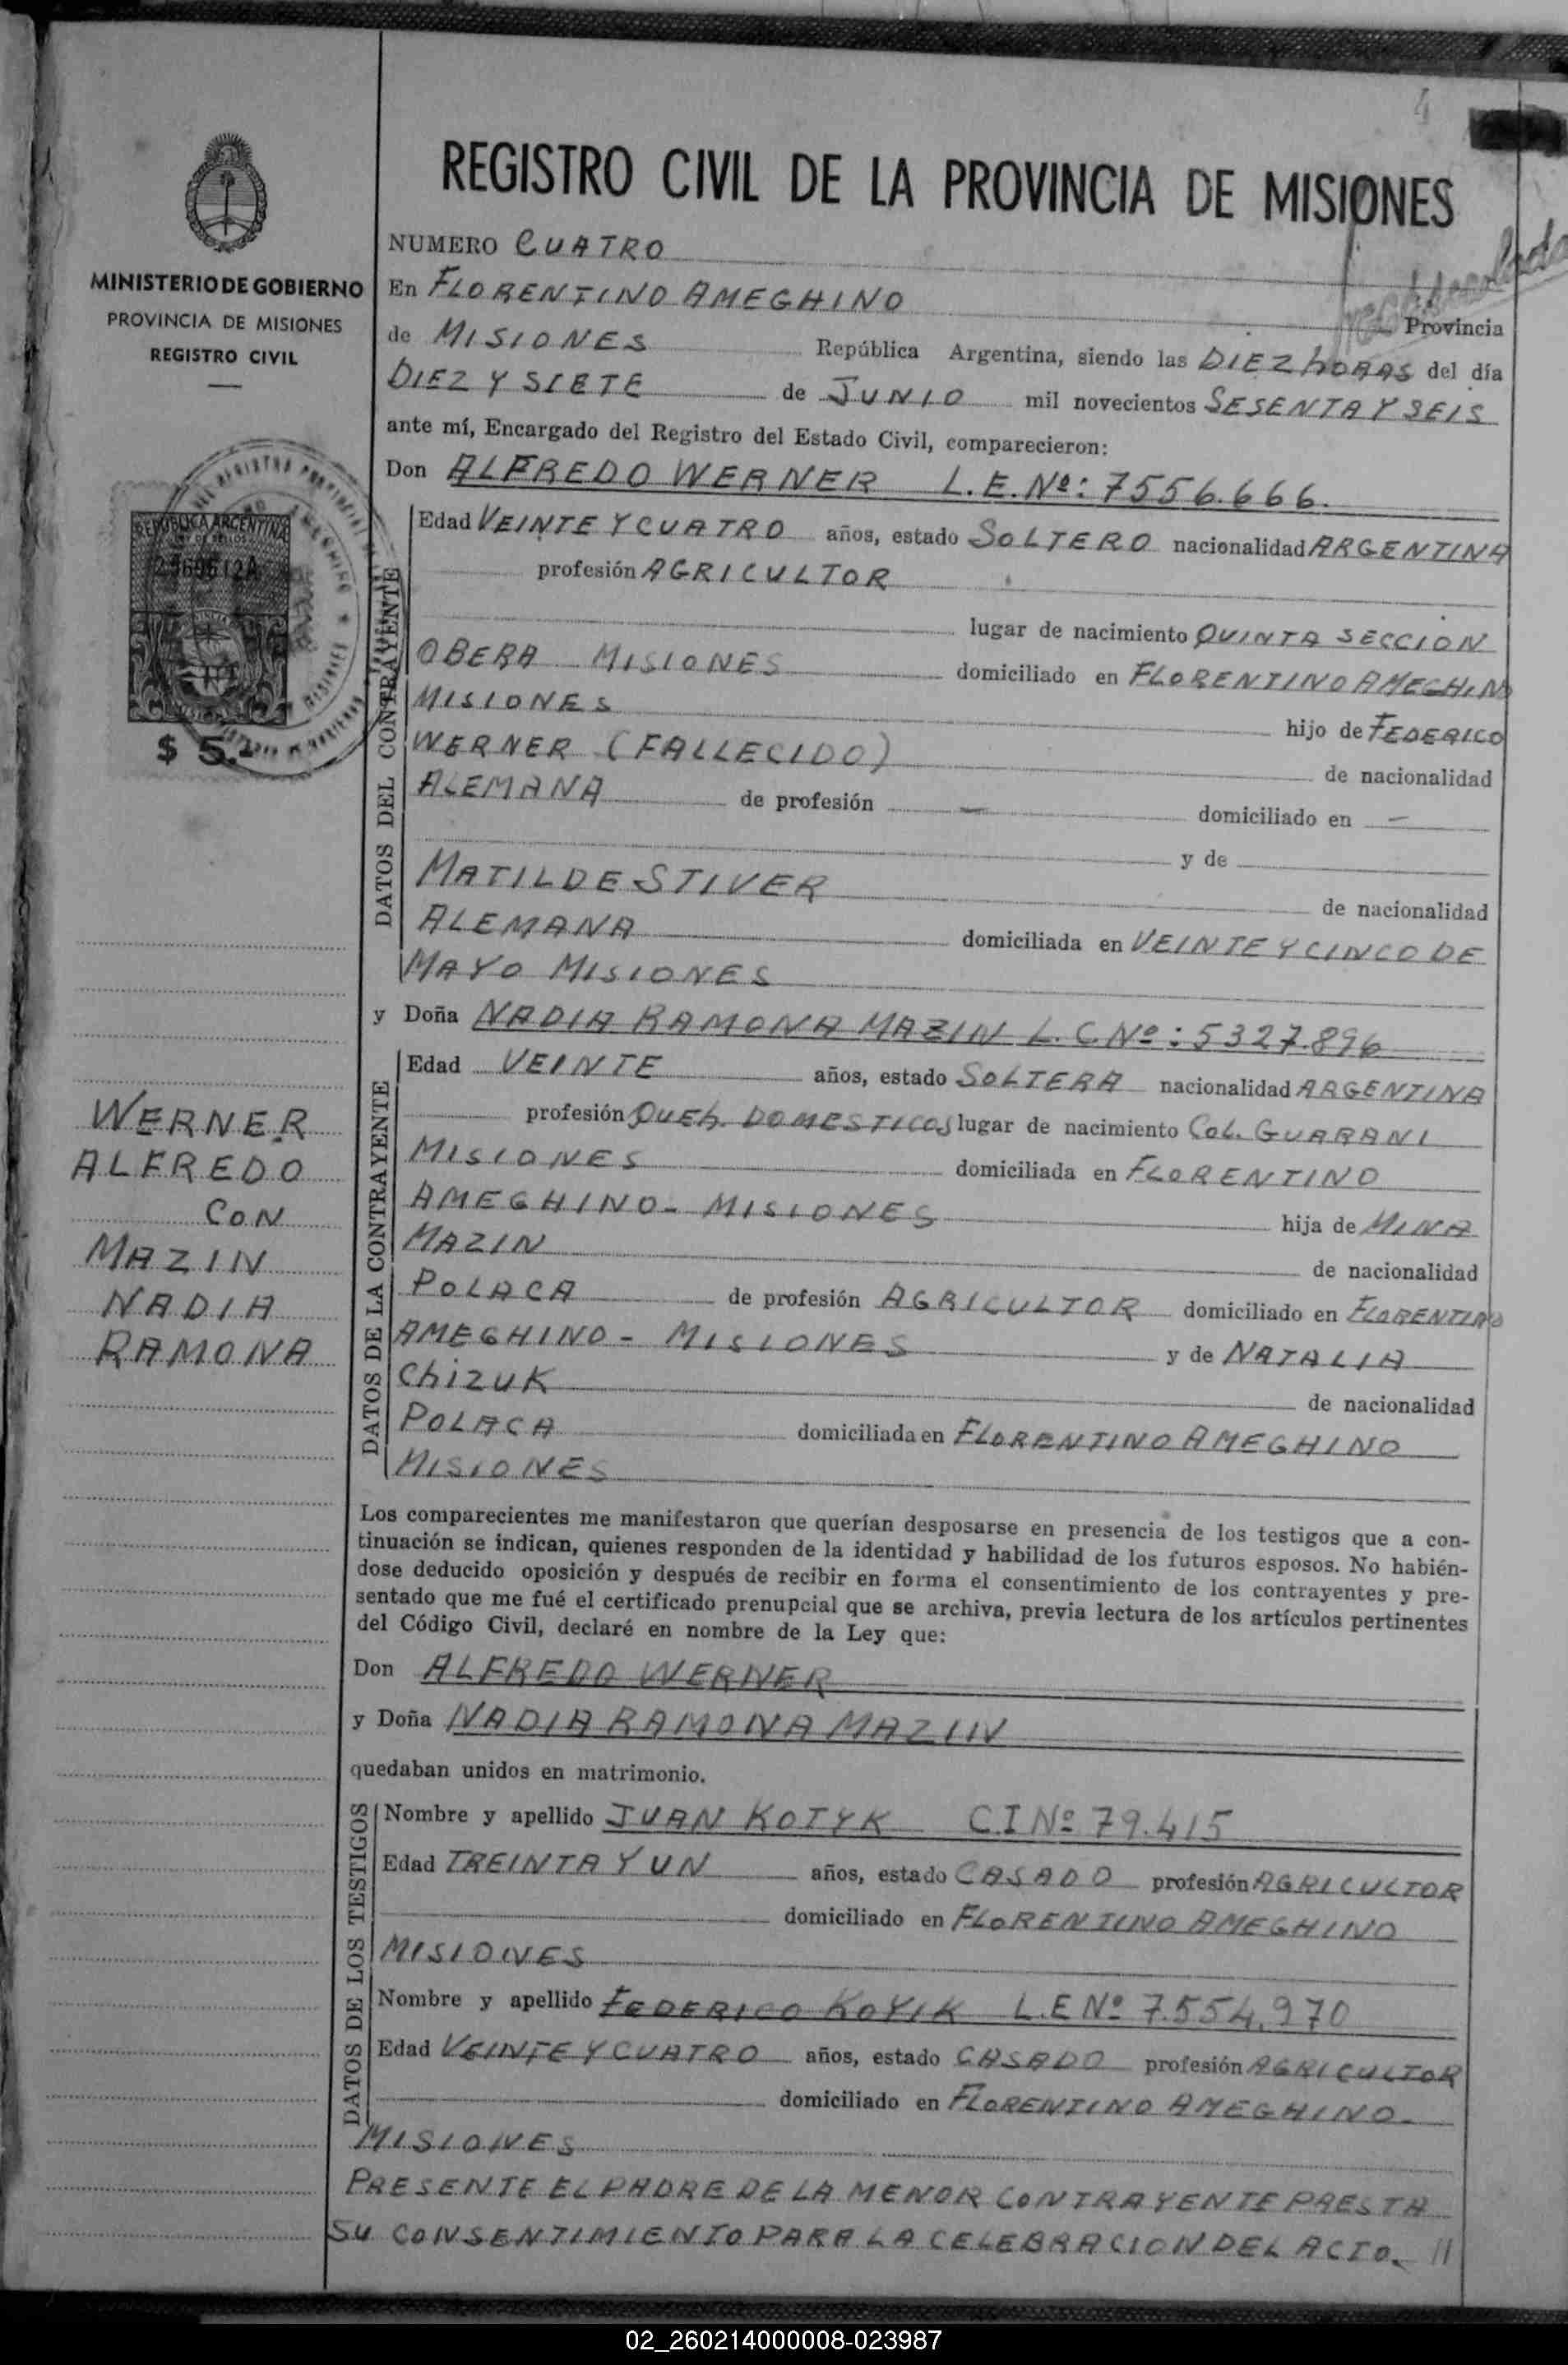 4
REGISTRO CIVIL DE LA PROVINCIA DE MISIONES
MINISTERIO DE GOBIERNO
PROVINCIA DE MISIONES
REGISTRO CIVIL
NUMERO CUATRO
En FLORENTINO AMEGHINO Provincia
de MISIONES República Argentina, siendo las DIEZ hORAS del día
DIEZ Y SIETE de JUNIO mil novecientos SESENTA Y SEIS
ante mí, Encargado del Registro del Estado Civil, comparecieron:
Don ALFREDO WERNER L.E.Nº: 7556.666.
REPUBLICA ARGENTINA
$ 5.-
DATOS DEL CONTRAYENTE
Edad VEINTE Y CUATRO años, estado SOLTERO nacionalidad ARGENTINA
profesión AGRICULTOR
lugar de nacimiento QUINTA SECCION
OBERA MISIONES domiciliado en FLORENTINO AMEGHINO
MISIONES hijo de FEDERICO
WERNER (FALLECIDO) de nacionalidad
ALEMANA de profesión — domiciliado en —
y de
MATILDE STIVER de nacionalidad
ALEMANA domiciliada en VEINTE Y CINCO DE
MAYO MISIONES
y Doña NADIA RAMONA MAZIN L.C Nº: 5327.896
DATOS DE LA CONTRAYENTE
Edad VEINTE años, estado SOLTERA nacionalidad ARGENTINA
profesión QUEh. DOMESTICOS lugar de nacimiento COL. GUARANI
MISIONES domiciliada en FLORENTINO
AMEGHINO- MISIONES hija de MINA
MAZIN de nacionalidad
POLACA de profesión AGRICULTOR domiciliado en FLORENTINO
AMEGHINO - MISIONES y de NATALIA
ChizUK de nacionalidad
POLACA domiciliada en FLORENTINO AMEGHINO
MISIONES
WERNER
ALFREDO
CON
MAZIN
NADIA
RAMONA
Los comparecientes me manifestaron que querían desposarse en presencia de los testigos que a con-
tinuación se indican, quienes responden de la identidad y habilidad de los futuros esposos. No habién-
dose deducido oposición y después de recibir en forma el consentimiento de los contrayentes y pre-
sentado que me fué el certificado prenupcial que se archiva, previa lectura de los artículos pertinentes
del Código Civil, declaré en nombre de la Ley que:
Don ALFREDO WERNER
y Doña NADIA RAMONA MAZIN
quedaban unidos en matrimonio.
DATOS DE LOS TESTIGOS
Nombre y apellido JUAN KOTYK C.I Nº 79.415
Edad TREINTA Y UN años, estado CASADO profesión AGRICULTOR
domiciliado en FLORENTINO AMEGHINO
MISIONES
Nombre y apellido FEDERICO KOYIK L.E Nº 7.554.970
Edad VEINTE Y CUATRO años, estado CASADO profesión AGRICULTOR
domiciliado en FLORENTINO AMEGHINO-
MISIONES
PRESENTE EL PADRE DE LA MENOR CONTRAYENTE PRESTA
SU CONSENTIMIENTO PARA LA CELEBRACION DEL ACTO. //
02_260214000008-023987